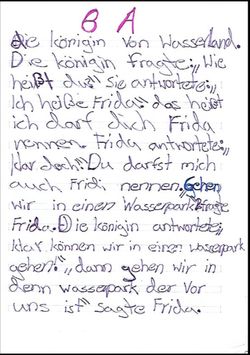 B A
Die königin von Wasserland.
Die königin fragte: „Wie
heißt du." Sie antwortete:
Ich heiße Frida" das heißt
ich darf dich Frida
nennen. Frida antwortete:
klar doch." Du darfst mich
auch Fridi nennen. Gehen
wir in einen Wasserpark? frage
Frida. Die königin antwortete
klar können wir in einen wasserpark
gehen." „dann gehen wir in
denn wasserpark der vor
uns ist" sagte Frida.